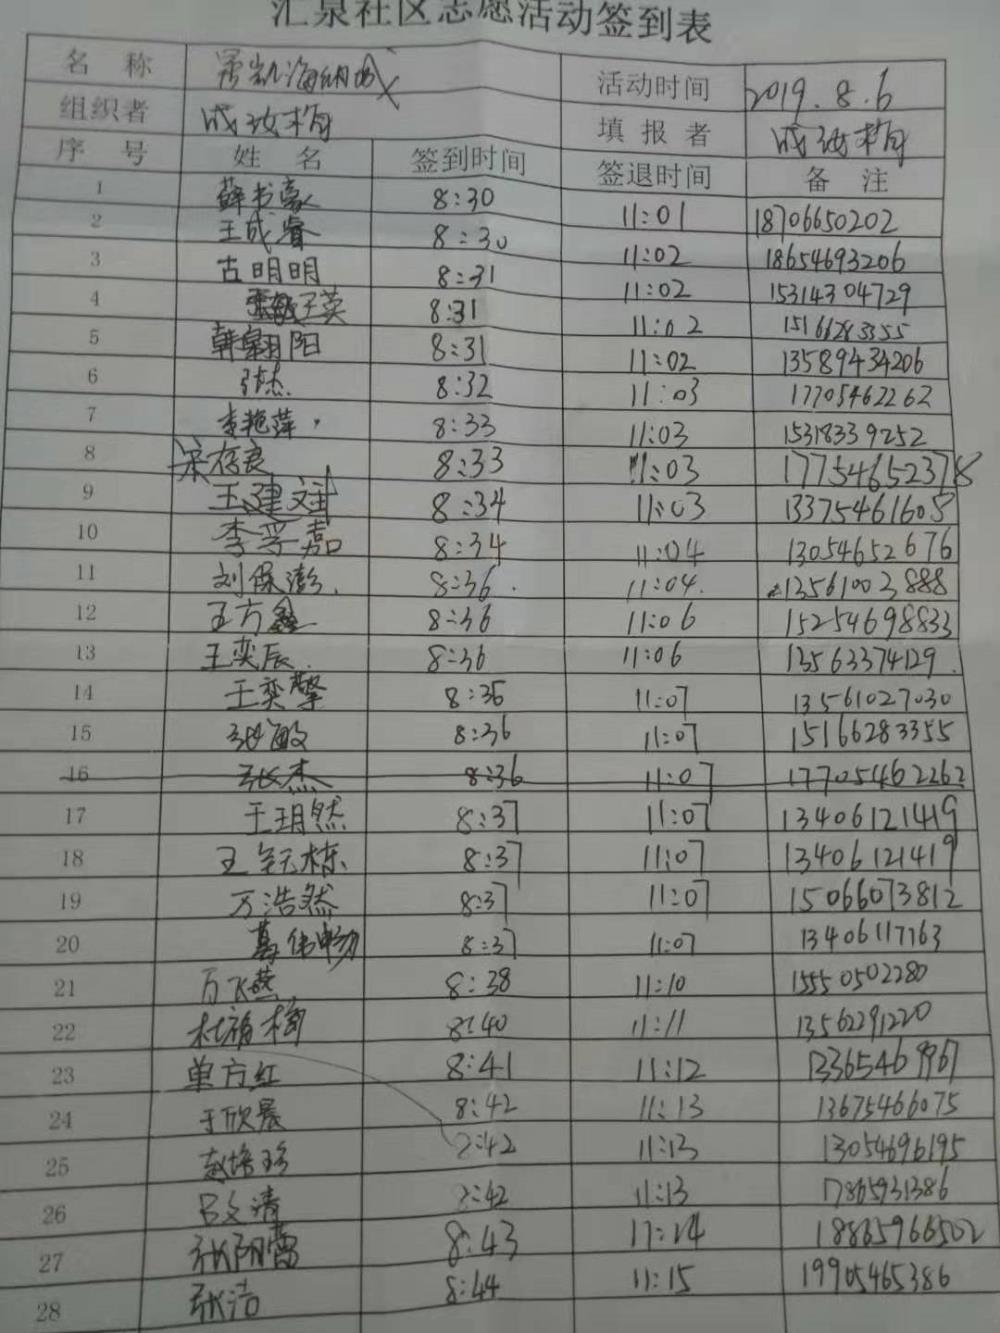 汇泉社区志愿活动签到表
名 称 活动时间 2019.8.6
组织者 成汝梅 填报者 成汝梅
序 号 姓 名 签到时间 签退时间 备 注
1 薛书豪 8:30 11:01 18706650202
2 王成睿 8:30 11:02 18654693206
3 古明明 8:31 11:02 15314304729
4 8:31 11:02 15166283355
5 韩翱阳 8:31 11:02 13589434206
6 张杰 8:32 11:03 17705462262
7 李艳萍 8:33 11:03 15318339252
8 8:33 11:03 17754652378
9 王建斌 8:34 11:03 13375461605
10 李孚嘉 8:34 11:04 13054652676
11 刘保澎 8:36 11:04 13561003888
12 王方鑫 8:36 11:06 15254698833
13 王奕辰 8:36 11:06 13563374129
14 王奕擎 8:36 11:07 13561027030
15 张敏 8:36 11:07 15166283355
16 张杰 8:36 11:07 17705462262
17 王玥然 8:37 11:07 13406121419
18 王钰栋 8:37 11:07 13406121419
19 万浩然 8:37 11:07 15066073812
20 葛伟畅 8:37 11:07 13406117163
21 万飞燕 8:38 11:10 15550502280
22 杜福梅 8:40 11:11 13562291220
23 单方红 8:41 11:12 13365469967
24 于欣晨 8:42 11:13 13675466075
25 赵培珍 8:42 11:13 13054696195
26 吕文清 8:42 11:13 17865931386
27 张阴雷 8:43 11:14 18865966502
28 张洁 8:44 11:15 19905465386